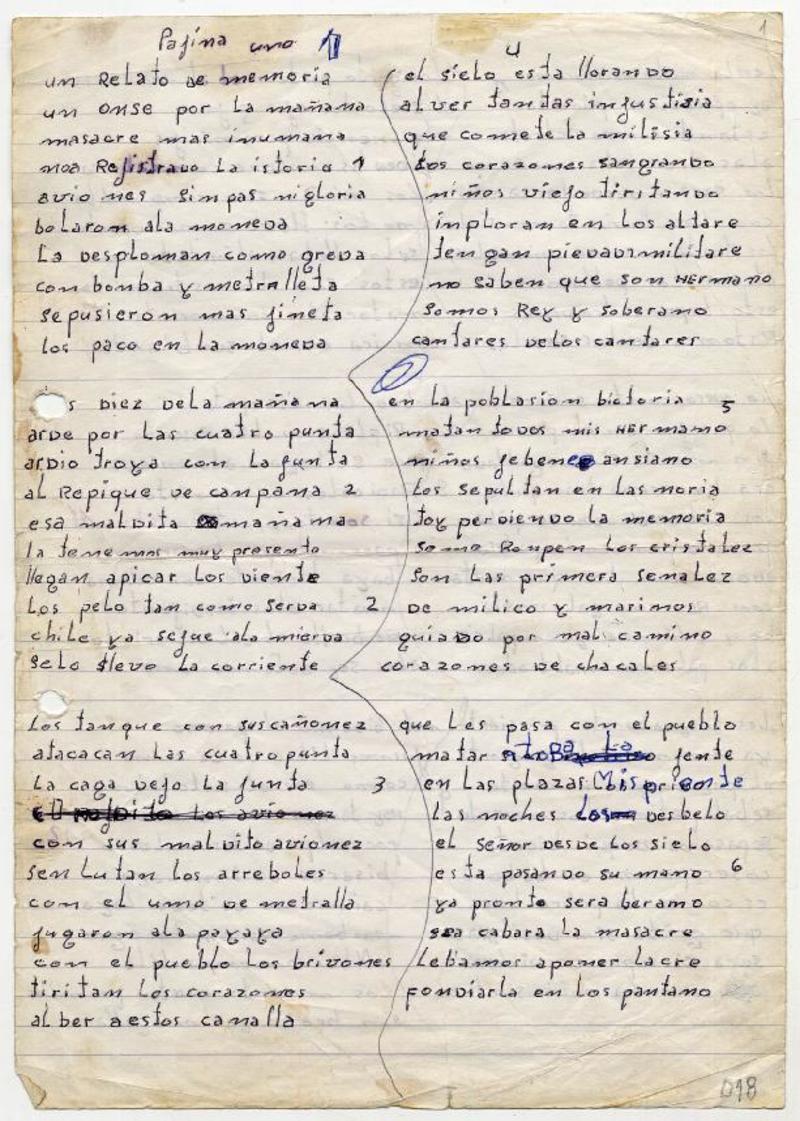 Pajina uno 1
un Relato de memoria
un onse por la mañana
masacre mas inumana
noa Rejistravo la istoria 1
aviones sin pas nigloria
bolaron ala moneda
la desploman como greda
con bonba y metralleta
sepusieron mas jineta
los paco en la moneda
s diez dela mañana
arde por las cuatro punta
ardio troya con la junta
al Repique de campana 2
esa maldita mañana
la tenemos muy presente
llegan apicar los diente
los pelo tan como serda 2
chile ya sejue ala mierda
selo llevo la corriente
los tanque con suscañonez
atacacan las cuatro punta
la caga dejo la junta 3
con sus maldito avionez
senlutan los arreboles
con el umo de metralla
jugaron ala payaya
con el pueblo los brivones
tiritan los corazones
al ber aestos canalla
4
el sielo esta llorando
alver tantas injustisia
que comete la milisia
los corazones sangrando
niños viejo tiritando
inploran en los altare
tengan piedadimilitare
no saben que son HERmano
somos Rey y soberano
cantares delos cantarer
en la poblasion bictoria 5
matan todos mis HERmano
niños jebene ansiano
los sepultan en las noria
toy perdiendo la memoria
somo Roupen los cristalez
son las primera senalez
de milico y marinos
guiado por mal camino
corazones de chacales
que les pasa con el pueblo
matar atoda la jente
en las plazas Mis pricente
las noches los desbelo
el señor desde los sielo
esta pasando su mano 6
ya pronto sera beramo
sea cabara la masacre
lebamos aponer lacre
fondiarla en los pantano
1
018